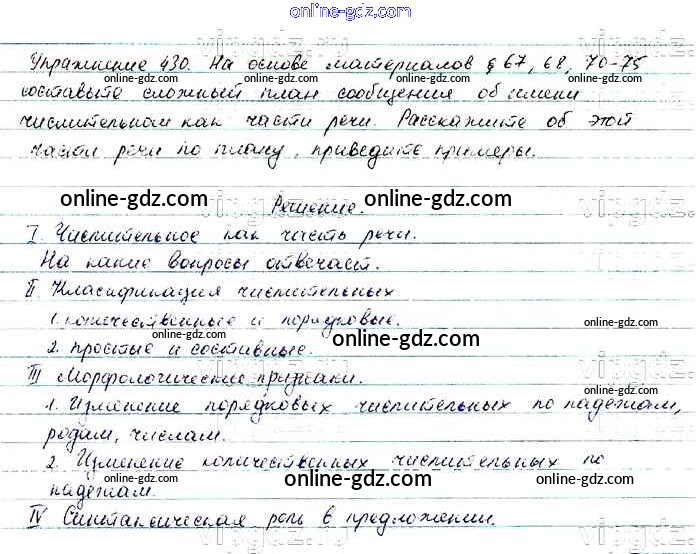 online-gdz.com
Упражнение 430. На основе материалов § 67, 68, 70-75
составьте сложный план сообщения об имени
числительном как части речи. Расскажите об этой
части речи по плану, приведите примеры.
Решение.
I. Числительное как часть речи.
На какие вопросы отвечает.
II. Классификация числительных
1. количественные и порядковые.
2. простые и составные.
III Морфологические признаки.
1. Изменение порядковых числительных по падежам,
родам, числам.
2. Изменение количественных числительных по
падежам.
IV Синтаксическая роль в предложении.